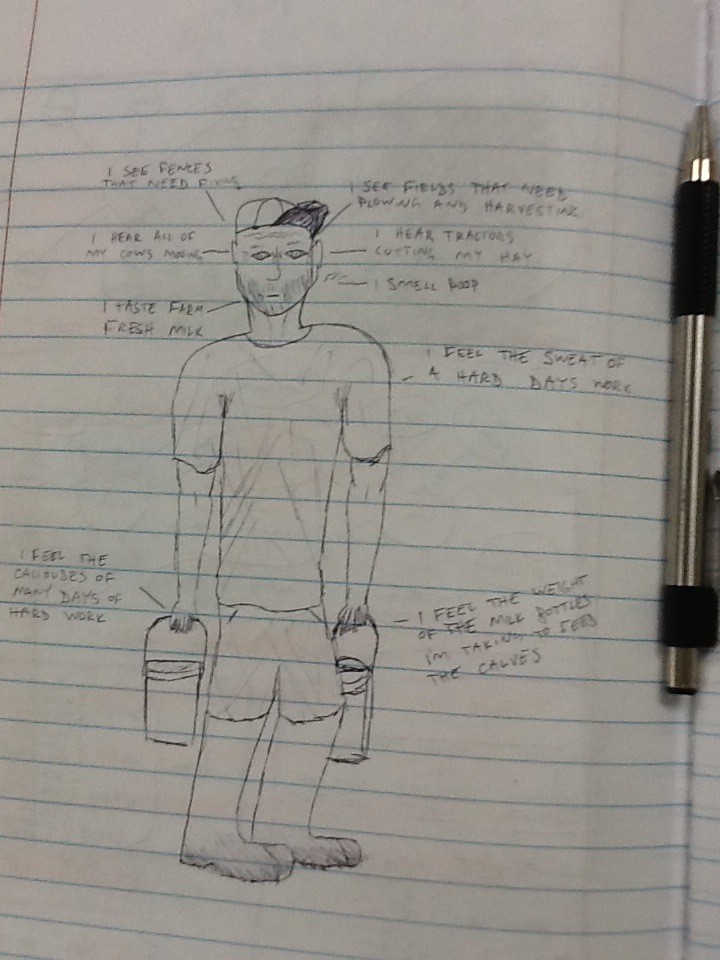 I SEE FENCES
THAT NEED FIXING
I SEE FIELDS THAT NEED
PLOWING AND HARVESTING
I HEAR ALL OF
MY COWS MOOING
I HEAR TRACTORS
CUTTING MY HAY
I SMELL POOP
I TASTE FARM
FRESH MILK
I FEEL THE SWEAT OF
A HARD DAYS WORK
I FEEL THE
CALLOUSES OF
MANY DAYS OF
HARD WORK
I FEEL THE WEIGHT
OF THE MILK BOTTLES
I'M TAKING TO FEED
THE CALVES